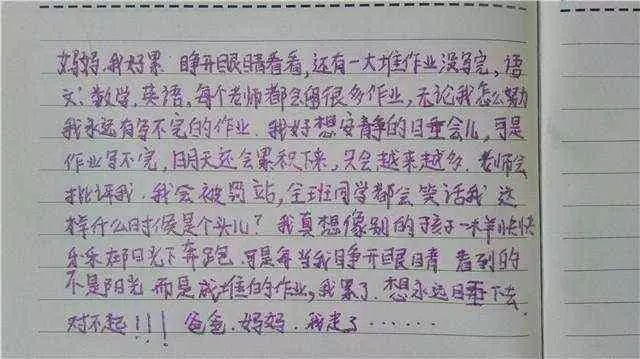 妈妈.我好累.睁开眼睛看看,还有一大堆作业没写完,语
文:数学.英语,每个老师都会留很多作业,无论我怎么努力
我永远有写不完的作业.我好想安静的睡会儿,可是
作业写不完,明天还会累积下来,只会越来越多.老师会
批评我.我会被罚站,全班同学都会笑话我 这
样什么时候是个头儿?我真想像别的孩子一样快快
乐乐在阳光下奔跑 可是每当我睁开眼睛 看到的
不是阳光 而是成堆的作业,我累了.想永远睡下去.
对不起!!!爸爸.妈妈.我走了……